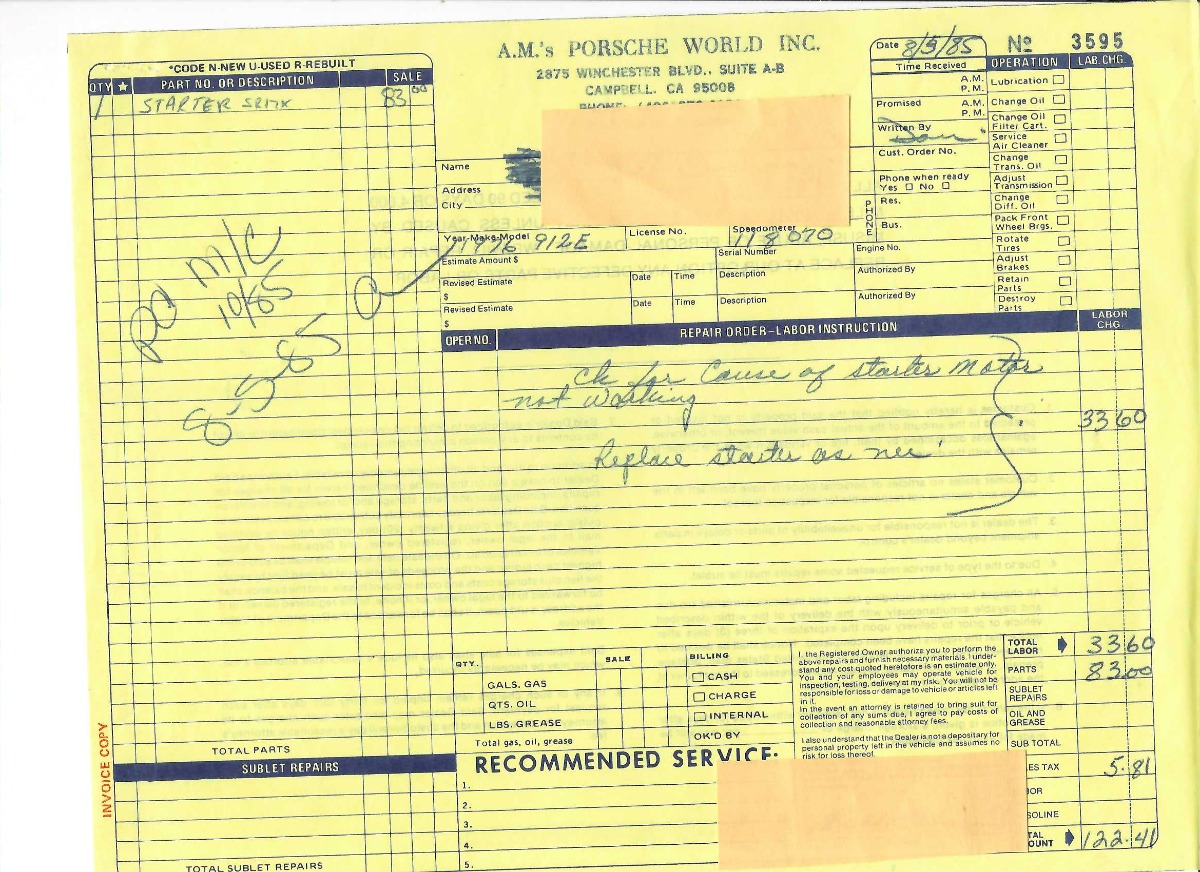 A.M.'s PORSCHE WORLD INC.
2875 WINCHESTER BLVD., SUITE A-B
CAMPBELL, CA 95008
Date 8/5/85
Nº 3595
Time Received
A.M.
P.M.
Promised
A.M.
P.M.
Written By
Cust. Order No.
Phone when ready
Yes No
PHONE
Res.
Bus.
OPERATION LAB. CHG.
Lubrication
Change Oil
Change Oil
Filter Cart.
Service
Air Cleaner
Change
Trans. Oil
Adjust
Transmission
Change
Diff. Oil
Pack Front
Wheel Brgs.
Rotate
Tires
Adjust
Brakes
Retain
Parts
Destroy
Parts
*CODE N-NEW U-USED R-REBUILT
QTY ★ PART NO. OR DESCRIPTION SALE
1 STARTER 83 00
pd M/C
10/85
8-5-85
Name
Address
City
Year-Make-Model 1976 912E
License No.
Speedometer 118070
Estimate Amount $
Serial Number
Engine No.
Revised Estimate
$
Date Time Description Authorized By
Revised Estimate
$
Date Time Description Authorized By
OPER NO. REPAIR ORDER–LABOR INSTRUCTION LABOR CHG.
Ck for Cause of starter Motor
not Working
33 60
Replace starter as nec.
TOTAL LABOR 33 60
PARTS 83.00
SUBLET REPAIRS
OIL AND GREASE
SUB TOTAL
ES TAX 5.81
IOR
SOLINE
TAL
OUNT 122.41
QTY. SALE
GALS. GAS
QTS. OIL
LBS. GREASE
Total gas, oil, grease
BILLING
CASH
CHARGE
INTERNAL
OK'D BY
I, the Registered Owner authorize you to perform the
above repairs and furnish necessary materials. I under-
stand any cost quoted heretofore is an estimate only.
You and your employees may operate vehicle for
inspection, testing, delivery at my risk. You will not be
responsible for loss or damage to vehicle or articles left
in it.
In the event an attorney is retained to bring suit for
collection of any sums due, I agree to pay costs of
collection and reasonable attorney fees.
I also understand that the Dealer is not a depositary for
personal property left in the vehicle and assumes no
risk for loss thereof.
RECOMMENDED SERVICE:
1.
2.
3.
4.
5.
TOTAL PARTS
SUBLET REPAIRS
TOTAL SUBLET REPAIRS
INVOICE COPY